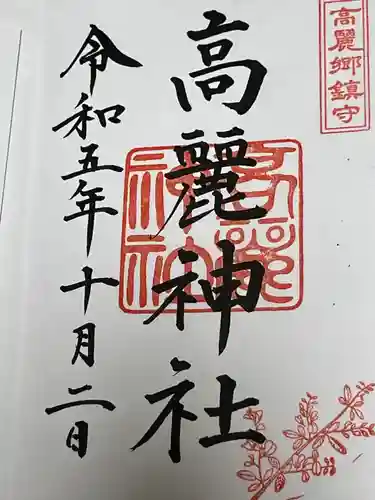 高麗郷鎮守
高麗神社
令和五年十月二日
高麗神社